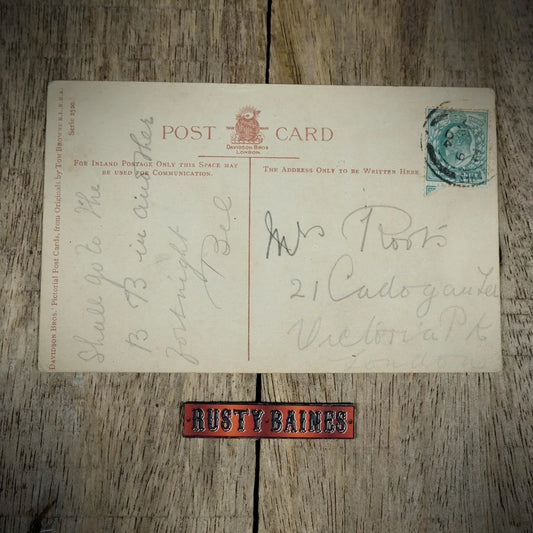 POST CARD
DAVIDSON BROS
LONDON.
FOR INLAND POSTAGE ONLY THIS SPACE MAY
BE USED FOR COMMUNICATION.
THE ADDRESS ONLY TO BE WRITTEN HERE
DAVIDSON BROS.' PICTORIAL POST CARDS, from Originals by TOM BROWNE R.I., R.B.A.
Serie 2520.
Shall go to the
B B in another
fortnight
Bel
Mrs Roots
21 Cadogan Ter
Victoria Pk
London
RUSTY·BAINES